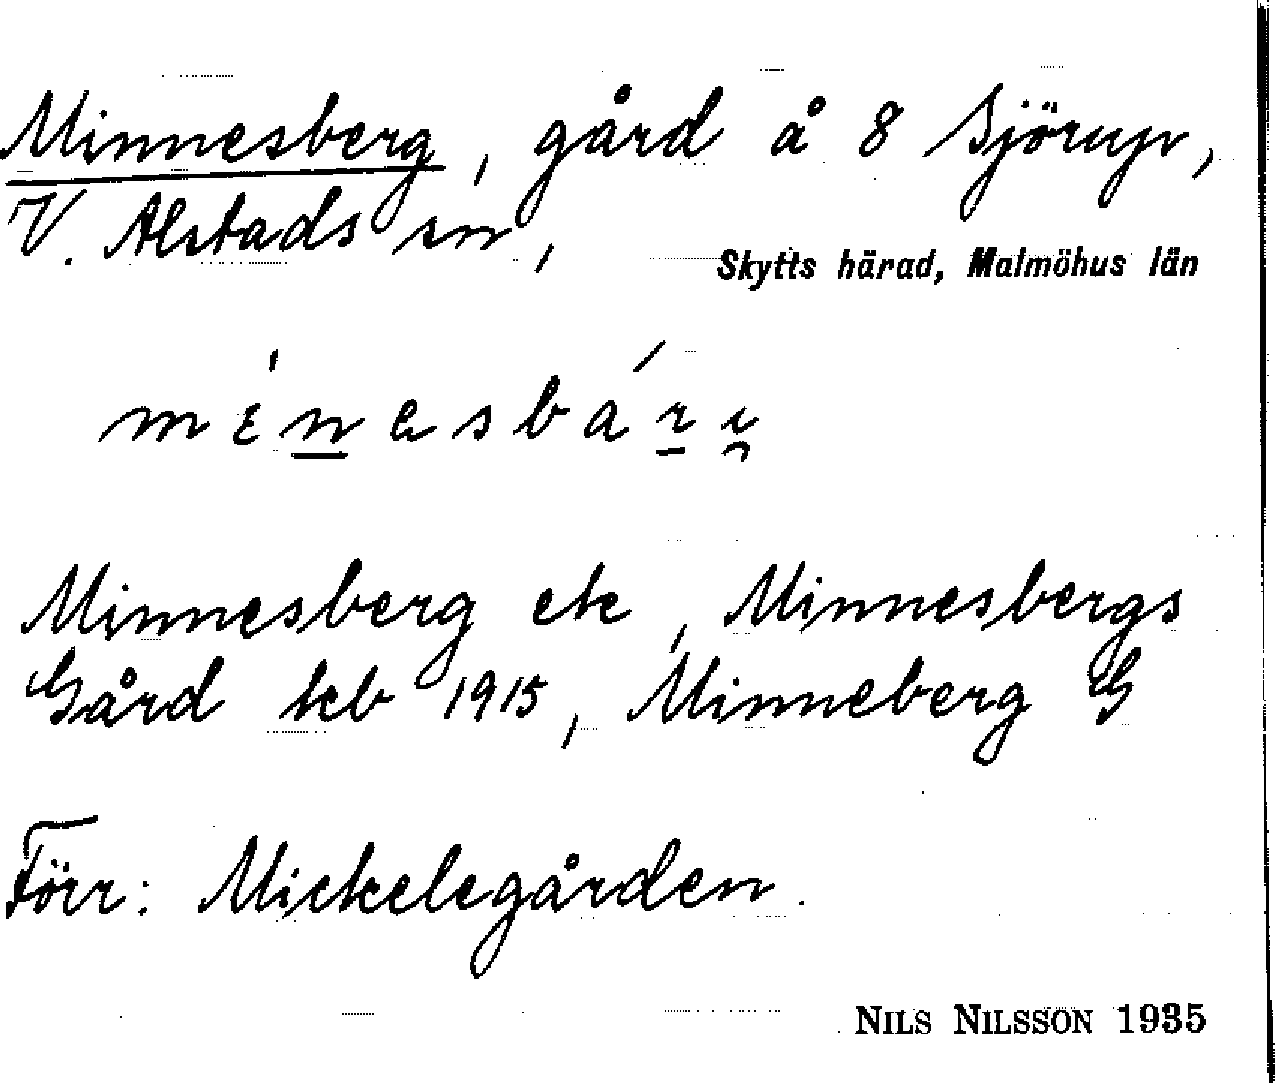 Minnesberg, gård å 8 Sjörup,
V. Alstads sn,
Skytts härad, Malmöhus län
Minnesberg ek, Minnesbergs
Gård kb 1915, Minneberg G
Förr: Mickelegården.
NILS NILSSON 1935